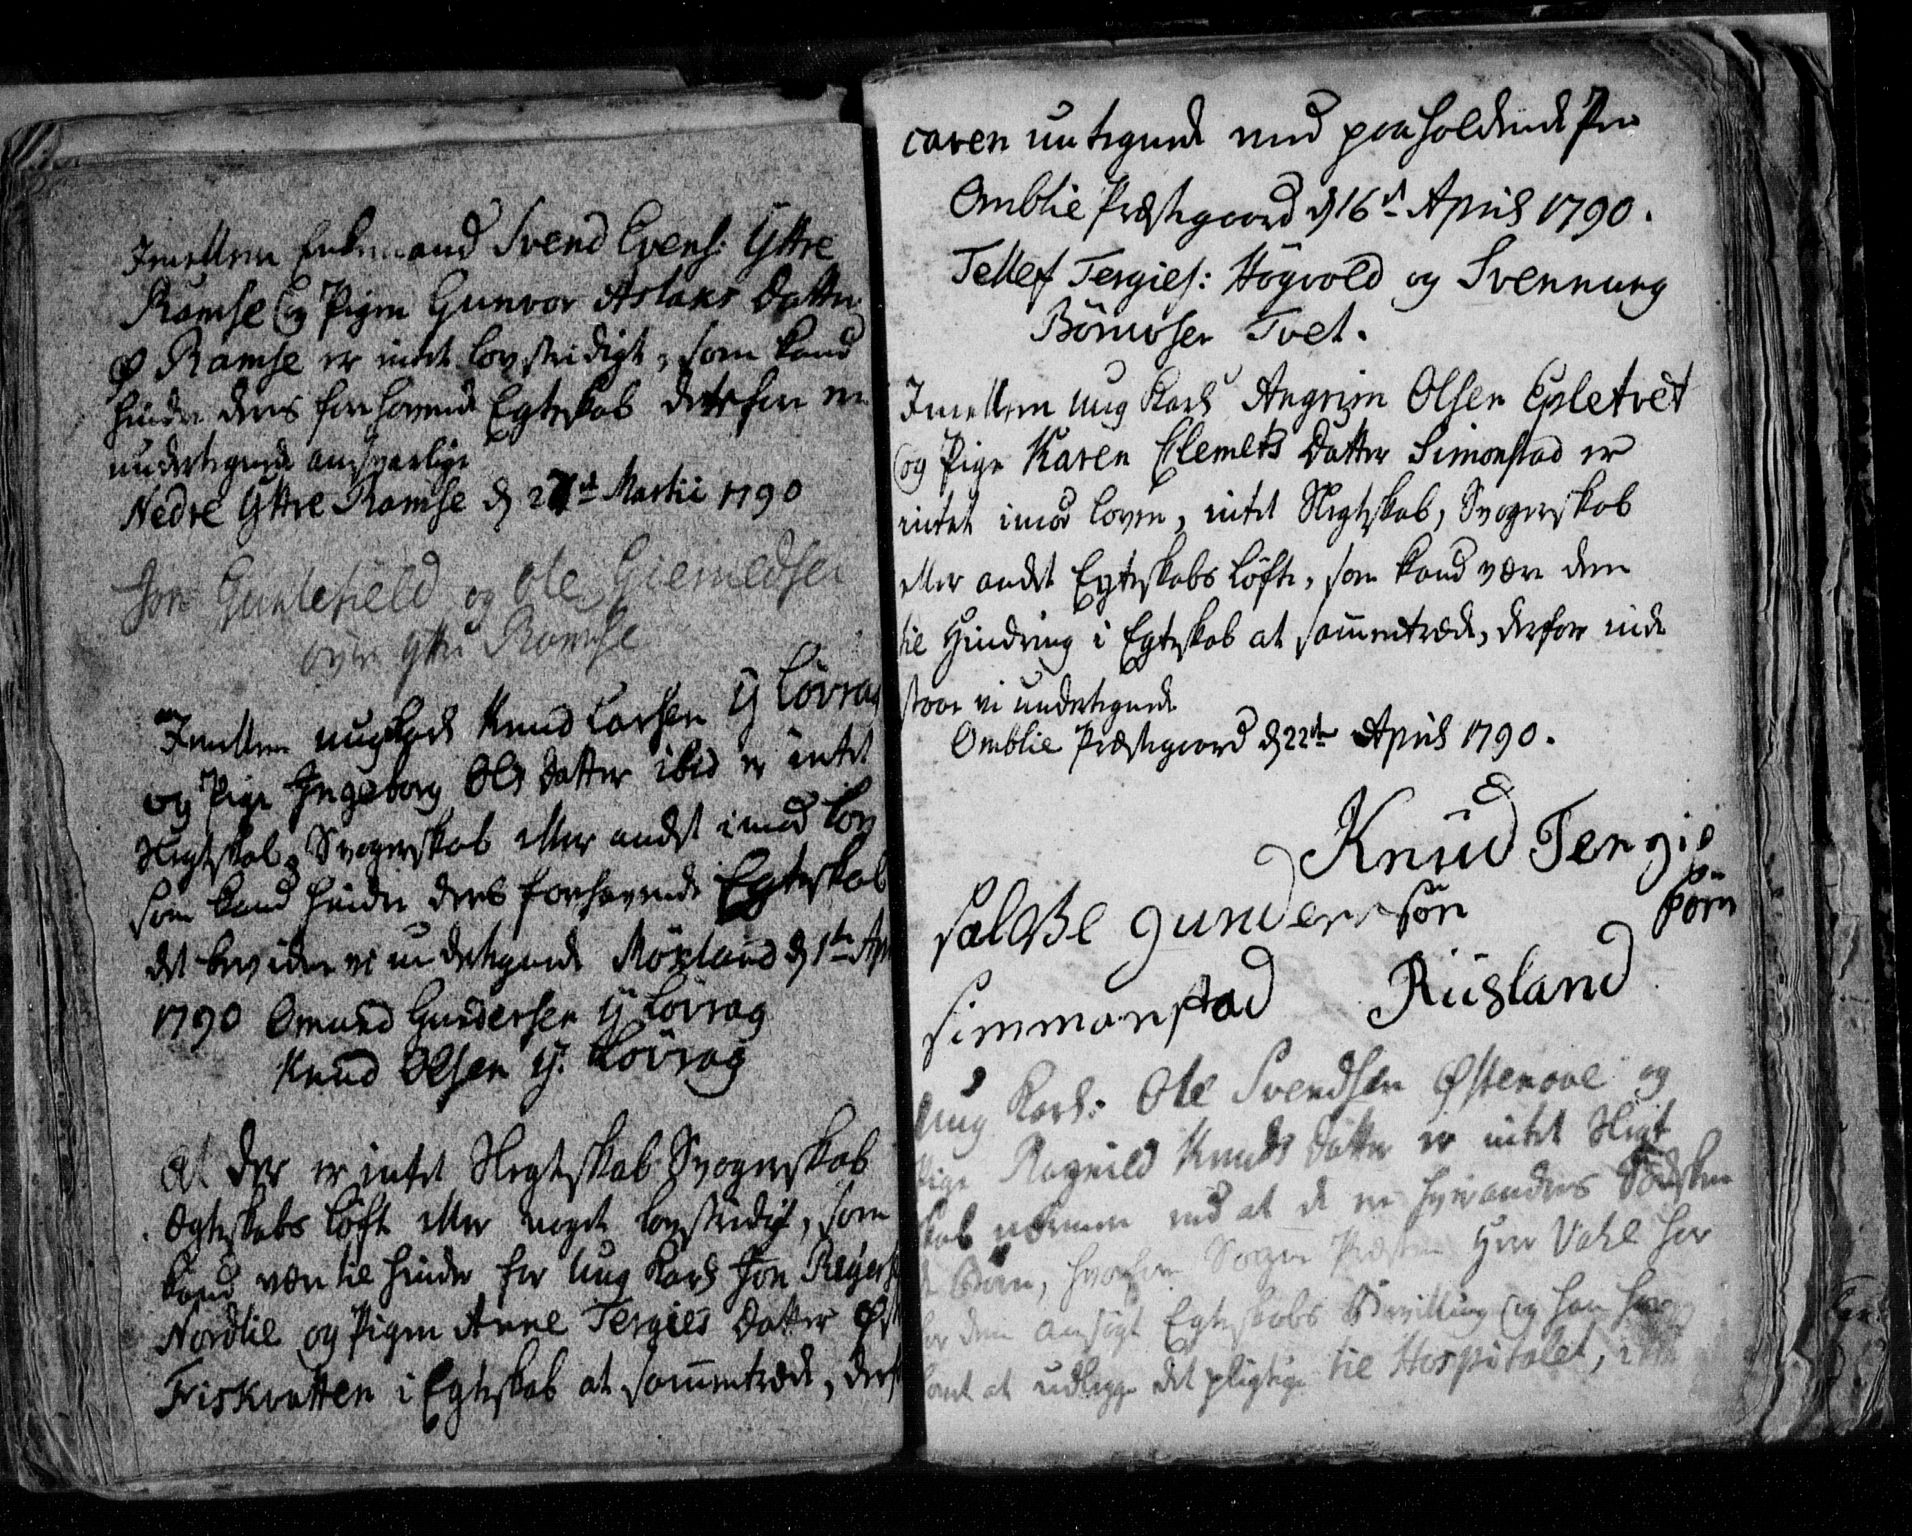 Imellem Enkemand Svend Evens: Yttre
Ramse og Pigen Gunvor Aslaks Datter
Ø Ramse er intet lovstridigt, som kand
hindre deres forhavende Egteskab derfor
undertegnede ansvarlige
Nedre Yttre Ramse d 27de Martii 1790
Jon og Ole
øvre Yttre Ramse
Imellem ung Karl Knud Larsen Y Løvrag
og Pige Ingeborg Ols Datter ibid er intet
Slegtskab, Svogerskab eller andet imod Lov
som kand hindre deres forhavende Egteskab
det bevidner vi undertegnede d 1te Apr
1790 Omund Gundersen Y Løvrag
Knud Olsen Y. Løvrag
At der er intet Slegtskab Svogerskab
Egteskabs Løfte eller noget lovstridigt, som
kand være til hinder for Ung Karl Jon
Nordlie og Pigen Anne Tergies Datter
Friskvatten i Egteskab at sammentræde,
caren undertegnede med paaholdende Pen
Omblie Præstegaard d 16de April 1790.
Tellef Tergies: Høgvold og Svennung
Børuvsen Tvet.
Imellem Ung Karl Angrim Olsen Epletvet
og Pige Karen Clemets Datter Simonstad er
intet imod Loven, intet Slegtskab, Svogerskab
eller andet Egteskabs Løfte, som kand være dem
til Hindring i Egteskab at sammentræde, derfor inde
staar vi undertegnede
Omblie Præstegaard d 22de April 1790.
Knud Tergie
sørn
gundersøn
simmonstad Riisland
Ung Karl: Ole Svendsen og
Pige Ragnild Knuds Datter er intet Slegt
skab nærmere end at de er hverandres Sødsken
de Børn, hvorfor Sogne Præsten Herr Vahl har
for dem ansøgt Egteskabs Bevilling og han har
lovet at udlegge det pligtige til Hospitalet,